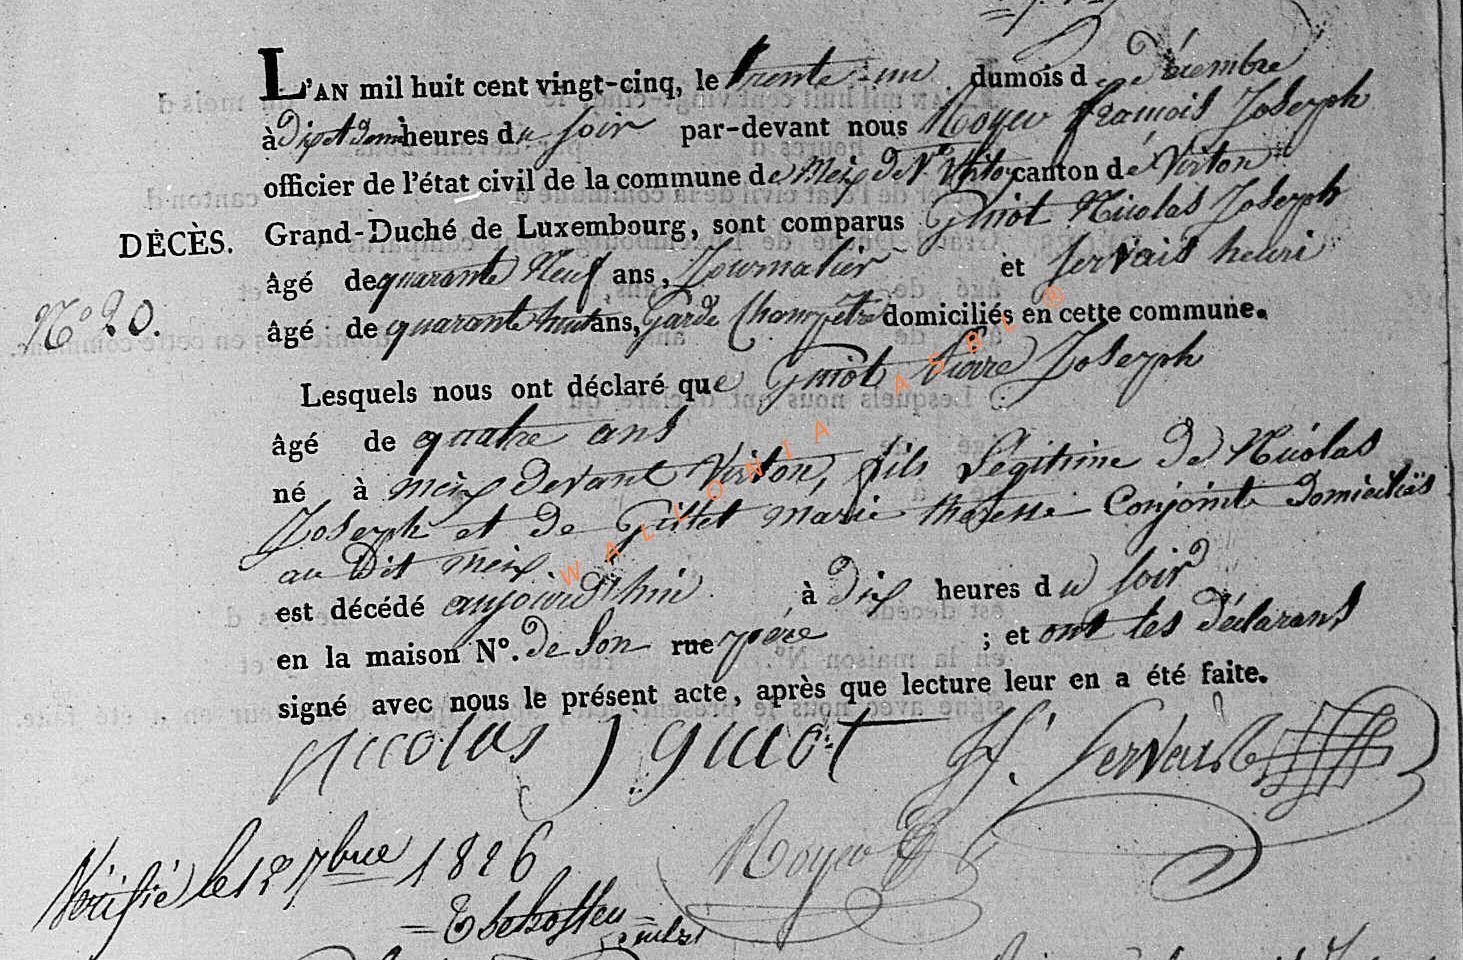 L'AN mil huit cent vingt-cinq, le trente-un du mois de Décembre
à Dix et demi heures du soir par-devant nous Noyer françois Joseph
officier de l'état civil de la commune de Meix Dev.t Virton canton de Virton
Grand-Duché de Luxembourg, sont comparus Guiot Nicolas Joseph
DÉCÈS.
âgé de quarante Neuf ans, Journalier et Servais henri
N° 20.
âgé de quarante huit ans, Garde Champetre domiciliés en cette commune.
Lesquels nous ont déclaré que Guiot pierre Joseph
âgé de quatre ans
né à meix devant Virton, fils Légitime de Nicolas
Joseph et de Gillet marie theresse Conjoints domiciliés
au Dit meix
est décédé aujourd'hui à dix heures du soir
en la maison N°. de Son rue père ; et ont les déclarans
signé avec nous le présent acte, après que lecture leur en a été faite.
nicolas J guiot H. Servais
Noyer
Vérifié le 12 7bre 1826
WALLONIA ASBL ®